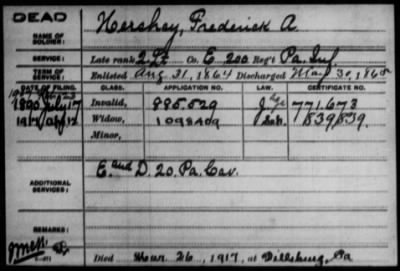 DEAD
NAME OF SOLDIER: Hershey, Frederick A.
SERVICE: Late rank 2 Lt Co. E 200 Reg't Pa. Inf.
TERM OF SERVICE: Enlisted Aug. 31, 1864 Discharged May 30, 1865
DATE OF FILING. CLASS. APPLICATION NO. LAW. CERTIFICATE NO.
1890 July 17 Invalid, 995.529 771.673
1917 Apr 12 Widow, 1098409 839839.
Minor,
ADDITIONAL SERVICES: E and D. 20. Pa. Cav.
REMARKS:
Died Mar. 26, 1917, at Dillsburg, Pa